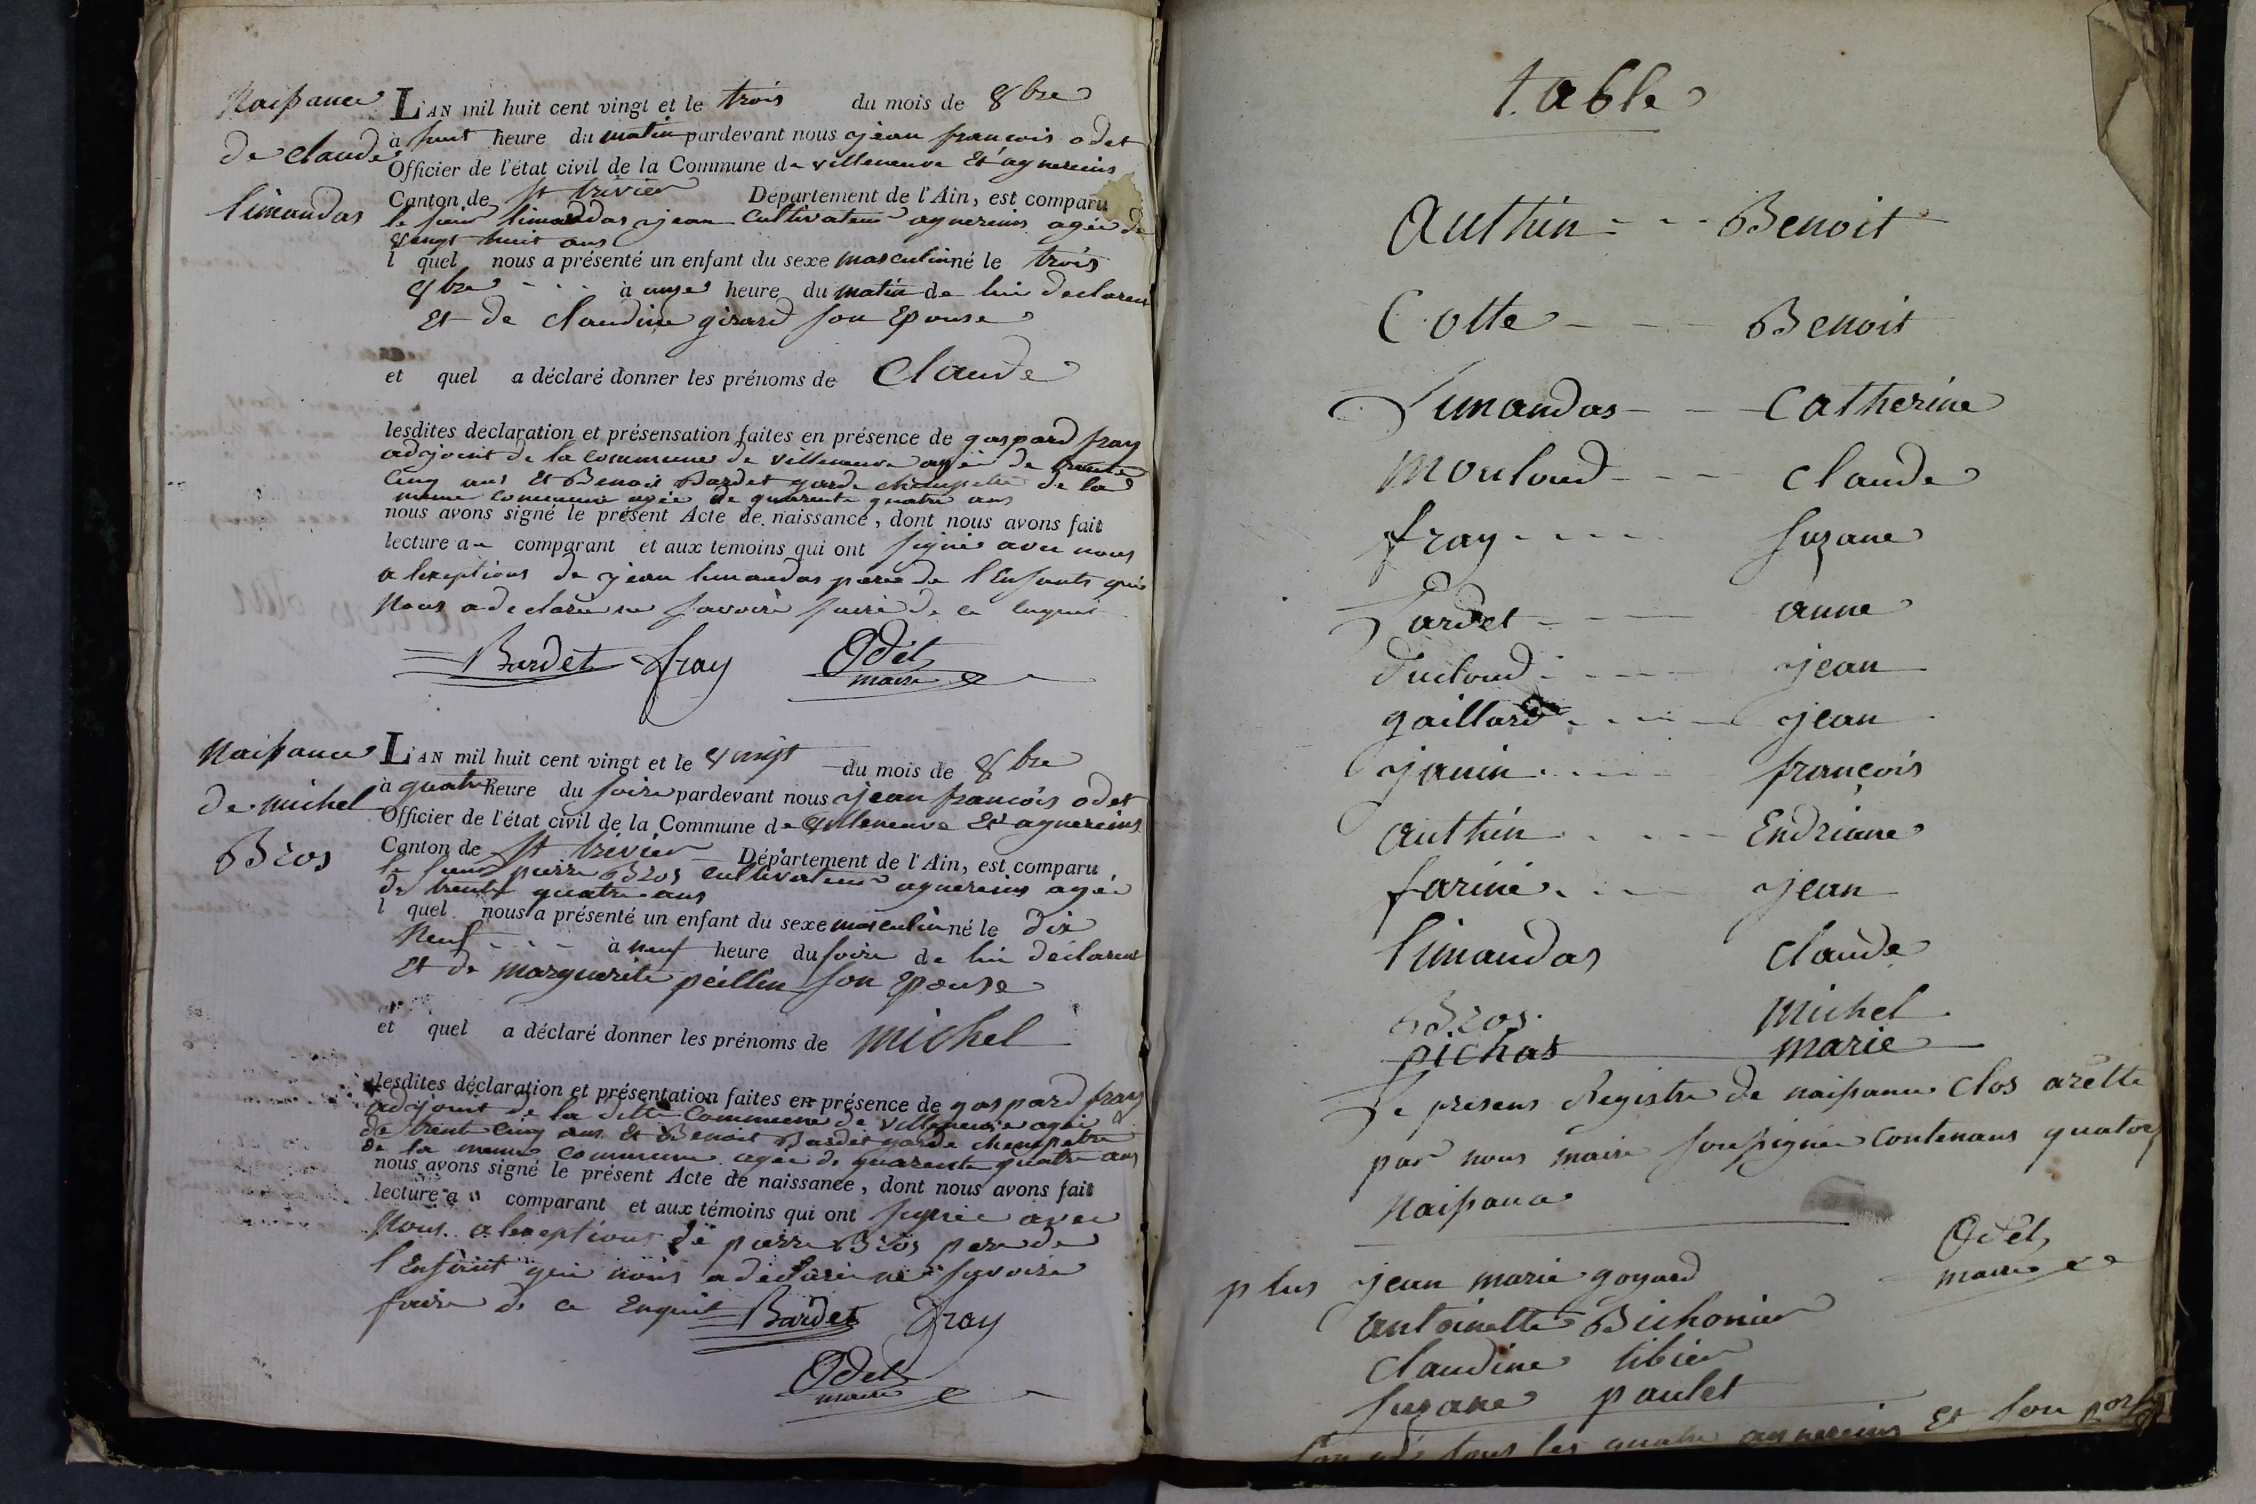 Naissance
de claude
limandas
L'AN mil huit cent vingt et le trois du mois de 8bre
à huit heure du matin pardevant nous jean francois odet
Officier de l'état civil de la Commune de villeneuve Et agnereins
Canton de St trivier Département de l'Ain, est comparu
le sieur limandas jean Cultivateur agnereins agée de
vingt huit ans
l quel nous a présenté un enfant du sexe masculin né le trois
8bre à unze heure du matin de lui declarent
Et de claudine girard son Epouse
et quel a déclaré donner les prénoms de Claude
lesdites declaration et présensation faites en présence de gaspard fray
adjoint de la commune de villeneuve agée de trente
Cinq ans Et Benoit Bardet garde champetre de la
meme commune agée de quarente quatre ans
nous avons signé le présent Acte de naissance, dont nous avons fait
lecture au comparant et aux temoins qui ont signé avec nous
a lexeptions de jean limandas pere de l'Enfants qui
Nous a declaré ne savoire faire de ce enquis
Bardet fray Odet
maire
Naissance
de michel
Bros
L'AN mil huit cent vingt et le vingt du mois de 8bre
à quatre heure du soire pardevant nous jean francois odet
Officier de l'état civil de la Commune de villeneuve Et agnereins
Canton de St trivier Département de l'Ain, est comparu
le sieur pierre Bros cultivateur agnereins agée
de trente quatre ans
l quel nous a présenté un enfant du sexe masculin né le dix
Neuf à neuf heure du soire de lui déclarent
Et de marguerite peillin son Epouse
et quel a déclaré donner les prénoms de michel
lesdites déclaration et présentation faites en présence de gaspard fray
adjoint de la ditte Commune de villeneuve agée
de trente Cinq ans Et Benoit Bardet garde champetre
de la meme commune agée de quarente quatre ans
nous avons signé le présent Acte de naissance, dont nous avons fait
lecture au comparant et aux témoins qui ont signée avec
Nous a lexeptions de pierre Bros pere de
l'Enfant qui nous a déclaré ne savoire
faire de ce Enquit Bardet fray
Odet
maire
table
authin Benoit
Cotte Benoit
Limandas Catherine
mouloud claude
fray suzane
Lardet anne
ducloud jean
gaillard jean
janin françois
authin Endriane
farine jean
limandas claude
Bros michel
pichat marie
Le presens Registre de naissance Clos arette
par nous maire soussignée Contenans quatorz
Naissance
Odet
maire
plus jean marie goyard
antoinette Bichonier
Claudine tibier
suzane paulet
tous les quatre agnereins Et son